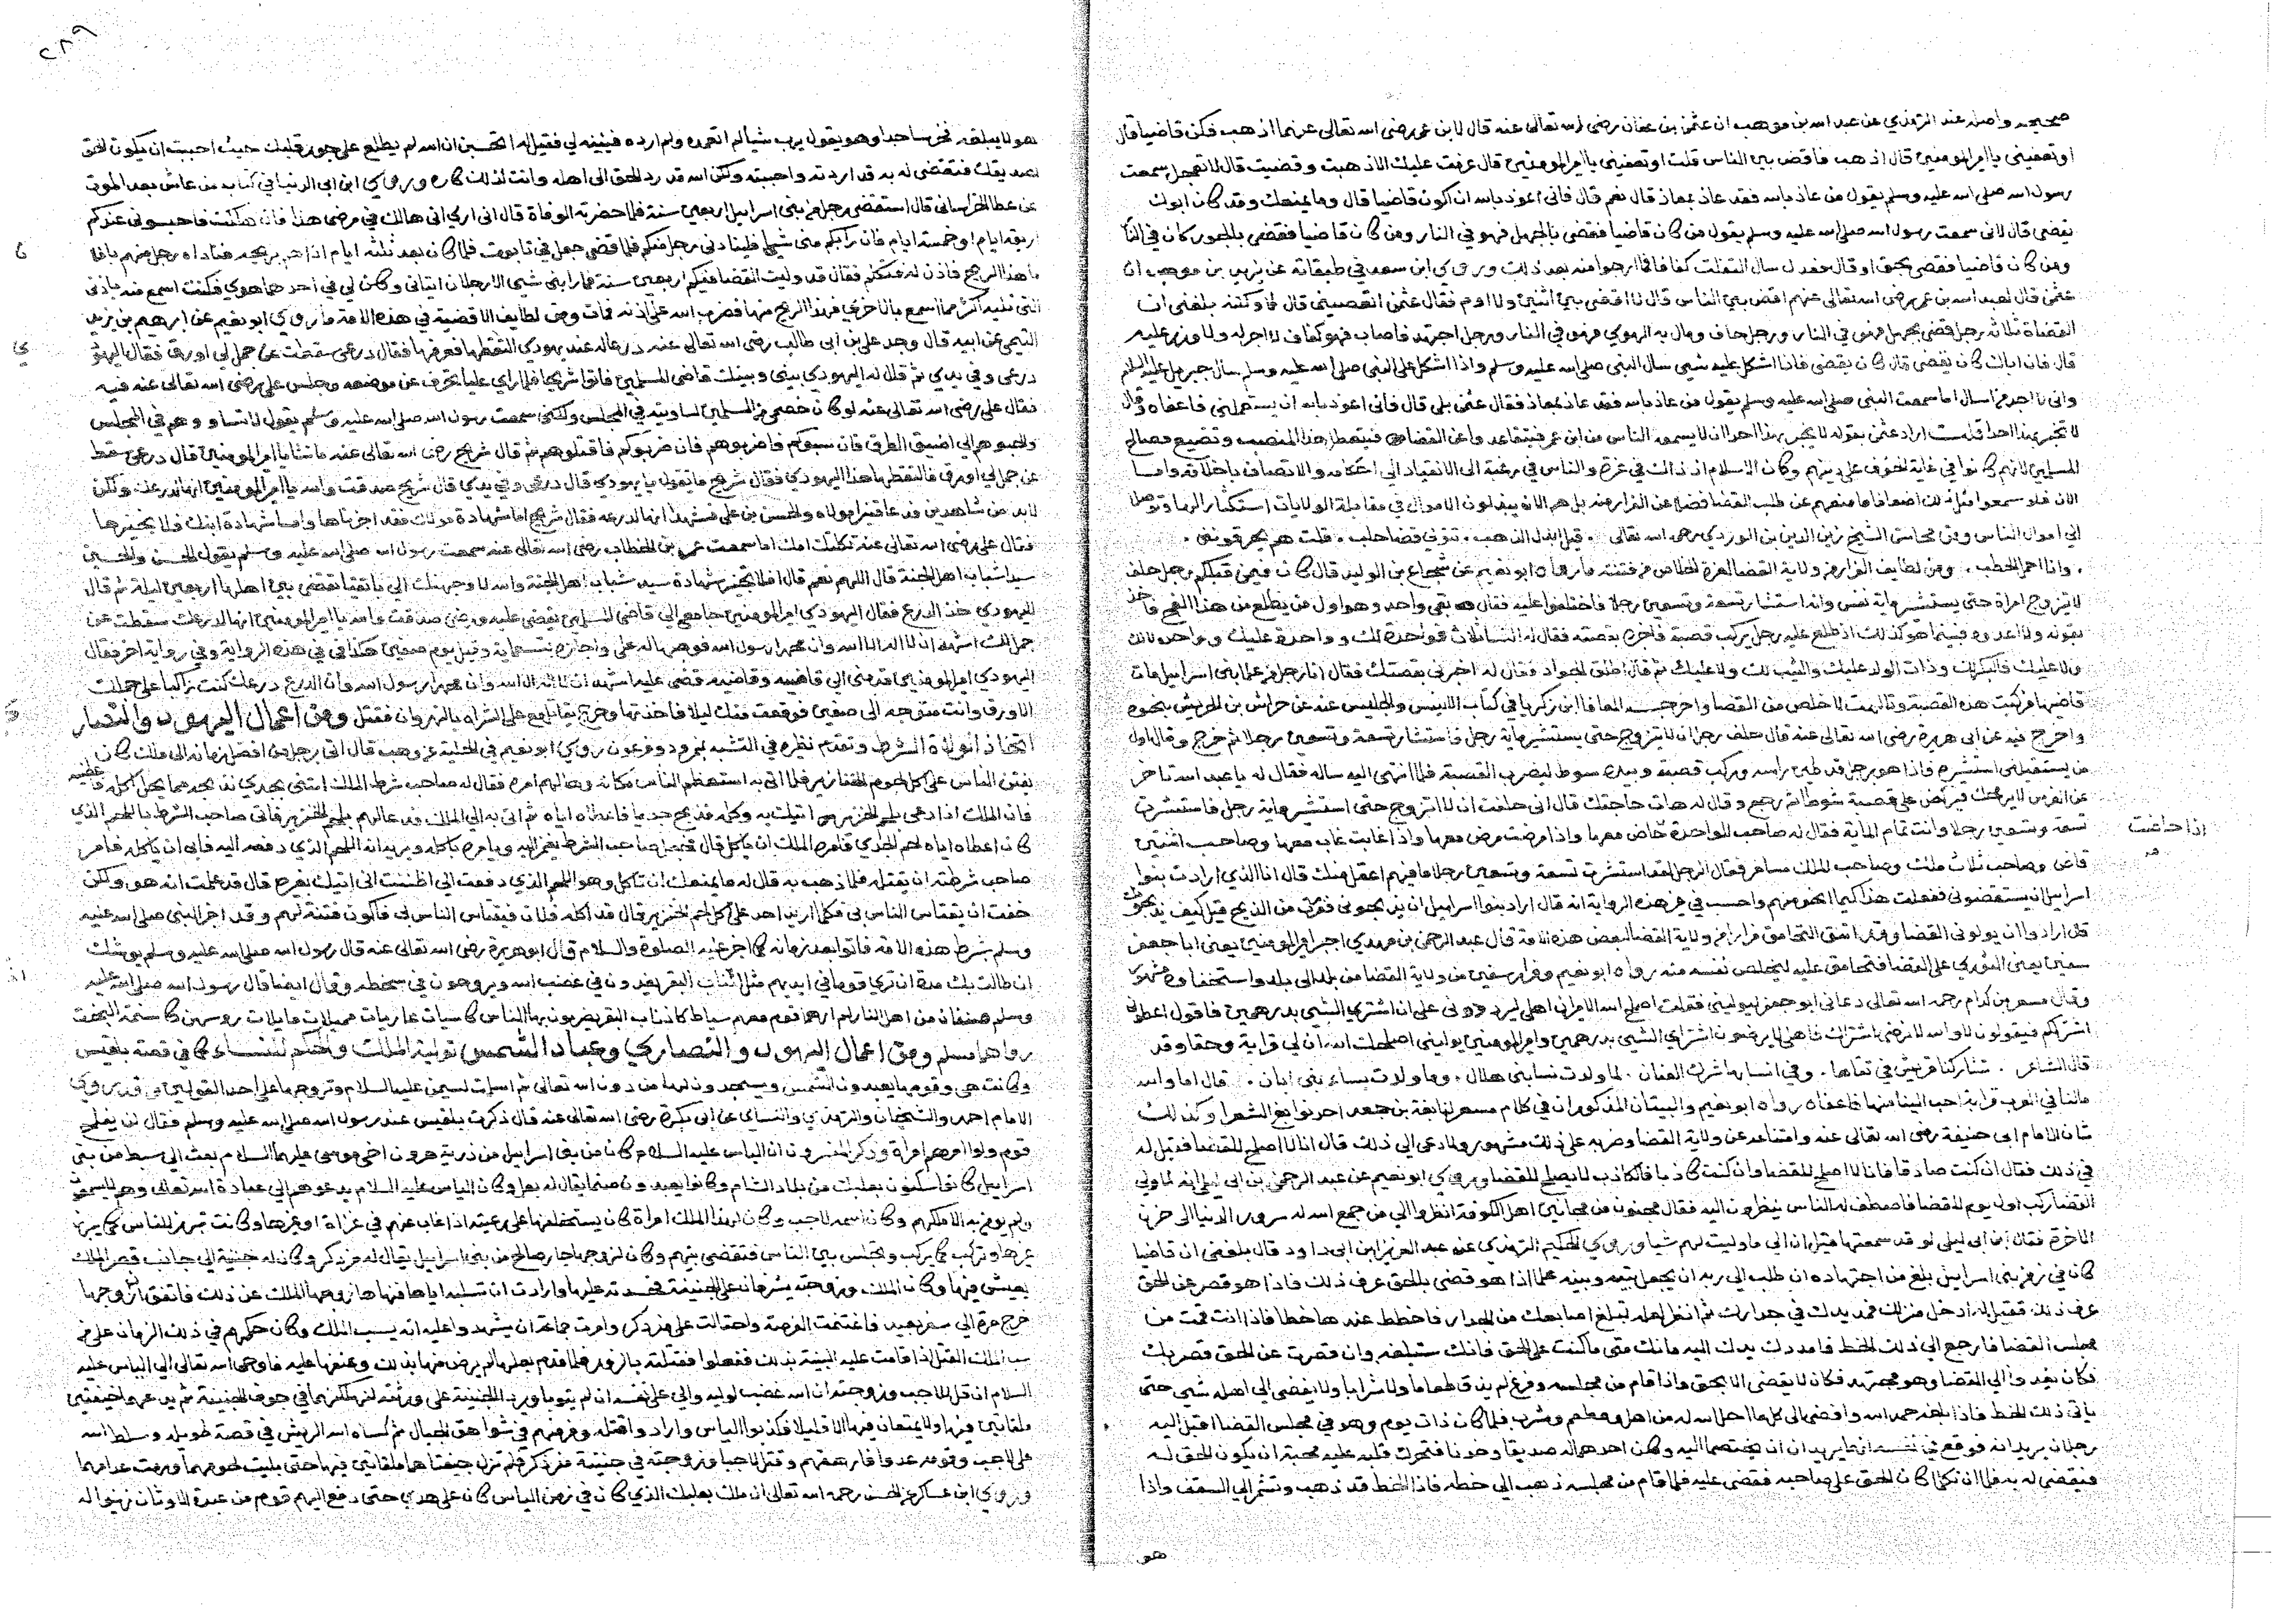 صحيحه واصله عند الترمذي عن عبد الله بن موهب ان عثمن بن عفان رضي الله تعالى عنه قال لابن عمر رضي الله تعالى عنهما اذهب فكن قاضيا قال
او تعفيني يا امير المومنين قال اذهب فاقض بين الناس قلت او تعفيني يا امير المومنين قال عزمت عليك الا ذهبت وقضيت قال لا تعجل سمعت
رسول الله صلى الله عليه وسلم يقول من عاذ بالله فقد عاذ بمعاذ قال نعم قال فاني اعوذ بالله ان اكون قاضيا قال وما يمنعك وقد كان ابوك
يقضي قال لاني سمعت رسول الله صلى الله عليه وسلم يقول من كان قاضيا فقضى بالجهل فهو في النار ومن كان قاضيا فقضى بالجور كان في النار
ومن كان قاضيا فقضى بحق او قال بعدل سال التفلت كفافا فما ارجو منه بعد ذلك وروي ابن سعد في طبقاته عن يزيد بن موهب ان
عثمن قال لعبد الله بن عمر رضي الله تعالى عنهم اقض بين الناس قال لا اقضي بين اثنين ولا اوم فقال عثمن اتعصيني قال لا ولكنه بلغني ان
القضاة ثلاثة رجل قضى بجهل فهو في النار ورجل حاف ومال به الهوي فهو في النار ورجل اجتهد فاصاب فهو كفاف لا اجر له ولا وزر عليه
قال فان اباك كان يقضي قال كان يقضي فاذا اشكل عليه شيي سال النبي صلى الله عليه وسلم واذا اشكل على النبي صلى الله عليه وسلم سال جبريل عليه السلام
واني لا اجد من اسال اما سمعت النبي صلى الله عليه وسلم يقول من عاذ بالله فقد عاذ بمعاذ فقال عثمن بلى قال فاني اعوذ بالله ان يستعملني فاعفاه وقال
لا تخبر بهذا احدا قلت اراد عثمن بقوله لا تخبر بهذا احدا ان لا يسمعه الناس من ابن عمر فيتقاعدوا عن القضا فيتعطل هذا المنصب وتضيع مصالح
المسلمين لانهم كانوا في غاية الخوف على دينهم وكان الاسلام اذ ذاك في عزة والناس في رغبة الى الانقياد الى احكامه والاتصاف باخلاقه واما
الان فلو سمعوا مثل ذلك اضعافا ما منعهم عن طلب القضا فضلا عن الفرار منه بل هم الان يبذلون الاموال في مقابلة الولايات استكثارا لها وتوصلا
الى اموال الناس ومن محاسن الشيخ زين الدين بن الوردي رحمه الله تعالى . قيل ابذل الذهب . تتولى قضا حلب . قلت هم يحرقونني .
. وانا احمل الحطب . ومن لطايف الفرار من ولاية القضا لعزة الخلاص من فتنته ما رواه ابو نعيم عن شجاع بن الوليد قال كان فيمن قبلكم رجل حلف
لا يتزوج امراة حتى يستشير ماية نفس وانه استشار تسعة وتسعين رجلا فاختلفوا عليه فقال بقي واحد وهو اول من يطلع من هذا الفج فاخذ
بقوله ولا اعدوه فبينما هو كذلك اذ طلع عليه رجل يركب قصبة فاخبره بقصته فقال له النسا ثلاث فواحدة لك وواحدة عليك وواحدة لا لك
ولا عليك فالبكر لك وذات الولد عليك والثيب لا لك ولا عليك ثم قال اطلق الجواد فقال له اخبرني بقصتك فقال انا رجل من علما بني اسراييل مات
قاضينا فركبت هذه القصبة وتبالهت لاخلص من القضا واخرج المعافا ابن زكريا في كتاب الانيس والجليس عنه
واخرج فيه عن ابي هريرة رضي الله تعالى عنه قال حلف رجل ان لا يتزوج حتى يستشير ماية رجل فاستشار تسعة وتسعين رجلا ثم خرج وقال اول
من يستقبلني استشيره فاذا هو برجل قد طين راسه وركب قصبة وبيده سوط ليضرب القصبة فلما انتهى اليه ساله فقال له يا عبد الله تاخر
عن الفرس لا يرمحك فركض على قصبته شوطا ثم رجع وقال له هات حاجتك قال اني حلفت ان لا اتزوج حتى استشير ماية رجل فاستشرت
تسعة وتسعين رجلا وانت تمام الماية فقال له صاحب الواحدة حاض معها واذا مرضت مرض معها واذا غابت غاب معها وصاحب اثنتين
اذا حاضت
قاض وصاحب ثلاث ملك وصاحب اربعة مسافر فقال الرجل لقد استشرت تسعة وتسعين رجلا ما فيهم اعقل منك قال انا الذي ارادت بنوا
اسراييل ان يستقضوني ففعلت هذا كيما انجو منهم
قال ارادوا ان يولوني القضا
سفين يعني الثوري على القضا فتحامق عليه ليخلص نفسه منه رواه ابو نعيم وفرار سفين من ولاية القضا من بلد الى بلد واستخفاوه مشهور
وقال مسعر بن كدام رحمه الله تعالى دعاني ابو جعفر ليوليني فقلت اصلح الله الامير ان اهلي ليريدونني على ان اشتري الشيي بدرهمين فاقول اعطوني
اشتر لكم فيقولون لا والله لا نرضى باشتراك فاهلي لا يرضون اشتراي الشيي بدرهمين وامير المومنين يوليني اصلحك الله ان لي قرابة وحقا وقد
قال الشاعر . تشاركنا قريش في تقاها . وفي انسابها شرك العنان . لما ولدت نسا بني هلال . وما ولدت نسا بني ابان . قال اما والله
مالنا في العرب قرابة احب الينا منها فاعفاه رواه ابو نعيم والبيتان المذكوران في كلام مسعر لنابغة بن جعد احد نوابغ الشعرا وكذلك
شان الامام ابي حنيفة رضي الله تعالى عنه وامتناعه عن ولاية القضا وضربه على ذلك مشهور ولما دعي الى ذلك قال انا لا اصلح للقضا فقيل له
في ذلك فقال ان كنت صادقا فانا لا اصلح للقضا وان كنت كاذبا فالكاذب لا يصلح للقضا وروي ابو نعيم عن عبد الرحمن بن ابي ليلى انه لما ولي
القضا ركب اول يوم للقضا فاصطف له الناس ينظرون اليه فقال مجنون من مجانين اهل الكوفة انظروا الى من جمع الله له سرور الدنيا الى حزن
الاخرة فقال ابن ابي ليلى لو قد سمعتها قبل ان الي ما وليت لهم شيا وروي الحكيم الترمذي عن عبد العزيز ابن ابي داود قال بلغني ان قاضيا
كان في زمن بني اسراييل بلغ من اجتهاده ان طلب الى ربه ان يجعل بينه وبينه علما اذا هو قضى بالحق عرف ذلك فاذا هو قصر عن الحق
عرف ذلك فقيل له ادخل منزلك فمد يدك في جدارك ثم انظر لعله تبلغ اصابعك من الجدار فاخطط عندها خطا فاذا انت قمت من
مجلس القضا فارجع الى ذلك الخط فامدد يدك اليه فانك متى ما كنت على الحق فانك ستبلغه وان قصرت عن الحق قصر بك
فكان يغدوا الى القضا وهو مجتهد فكان لا يقضي الا بحق واذا قام من مجلسه وفرغ لم يذق طعاما ولا شرابا ولا يفضي الى اهله بشي حتى
ياتي ذلك الخط فاذا بلغه حمد الله وافضى الى كل ما احل الله له من اهل ومطعم ومشرب فلما كان ذات يوم وهو في مجلس القضا اقبل اليه
رجلان يريدانه فوقع في نفسه انهما يريدان ان يختصما اليه وكان احدهما له صديقا وخدنا فتحرك قلبه عليه محبة ان يكون الحق له
فيقضي له به فلما ان تكلما كان الحق على صاحبه فقضى عليه فلما قام من مجلسه ذهب الى خطه فاذا الخط قد ذهب وتشمر الى السقف واذا
هو
٢٨٩
هو لا يبلغه فخر ساجدا وهو يقول يرب شيا لم اتعمده ولم ارده فبينه لي فقيل له اتحسبن ان الله لم يطلع على جور قلبك حيث احببت ان يكون الحق
لصديقك فتقضي له به قد اردته واحببته ولكن الله قد رد الحق الى اهله وانت لذلك كاره وروي ابن ابي الدنيا في كتابه من عاش بعد الموت
عن عطا الخراساني قال استقضي رجل من بني اسراييل اربعين سنة فلما حضرته الوفاة قال اني اري اني هالك في مرضي هذا فان هلكت فاحبسوني عندكم
اربعة ايام او خمسة ايام فان رابكم مني شيي فلينادني رجل منكم فلما قضى جعل في تابوت فلما كان بعد ثلثة ايام اذا هم بريحه فناداه رجل منهم يا فلا
ما هذا الريح فاذن له فتكلم فقال قد وليت القضا فيكم اربعين سنة فما رابني شيي الا رجلان اتياني وكان لي في احدهما هوي فكنت اسمع منه باذني
التي تليه اكثر مما اسمع بالاخري فهذا الريح منها فضرب الله على اذنه فمات ومن لطايف الاقضية في هذه الامة ما روي ابو نعيم عن ابرهيم بن يزيد
التيمي عن ابيه قال وجد علي بن ابي طالب رضي الله تعالى عنه درعا له عند يهودي التقطها فعرفها فقال درعي سقطت عن جمل لي اورق فقال اليهو
درعي وفي يدي ثم قال له اليهودي بيني وبينك قاضي المسلمين فاتوا شريحا فلما راي عليا تحرف عن موضعه وجلس علي رضي الله تعالى عنه فيه
فقال علي رضي الله تعالى عنه لو كان خصمي من المسلمين لساويته في المجلس ولكني سمعت رسول الله صلى الله عليه وسلم يقول لا تساووهم في المجلس
والجيوهم الى اضيق الطرق فان سبوكم فاضربوهم فان ضربوكم فاقتلوهم ثم قال شريح رضي الله تعالى عنه ما تشا يا امير المومنين قال درعي سقط
عن جمل لي اورق فالتقطها هذا اليهودي فقال شريح ما تقول يا يهودي قال درعي وفي يدي قال شريح صدقت والله يا امير المومنين انها لدرعك ولكن
لا بد من شاهدين فدعا قنبرا مولاه والحسن بن علي فشهدا انها لدرعه فقال شريح اما شهادة مولاك فقد اجزناها واما شهادة ابنك فلا نجيزها
فقال علي رضي الله تعالى عنه ثكلتك امك اما سمعت عمر بن الخطاب رضي الله تعالى عنه سمعت رسول الله صلى الله عليه وسلم يقول الحسن والحسين
سيدا شباب اهل الجنة قال اللهم نعم قال افلا تجيز شهادة سيد شباب اهل الجنة والله لاوجهنك الى بانقيا تقضي بين اهلها اربعين ليلة ثم قال
لليهودي خذ الدرع فقال اليهودي امير المومنين جا معي الى قاضي المسلمين فقضى عليه ورضي صدقت والله يا امير المومنين انها لدرعك سقطت عن
جمل لك اشهد ان لا اله الا الله وان محمدا رسول الله فوهبها له علي واجازه بتسعماية وقتل يوم صفين هكذا في هذه الرواية وفي رواية اخر فقال
اليهودي امير المومنين قدمني الى قاضيه وقاضيه قضى عليه اشهد ان لا اله الا الله وان محمدا رسول الله وان الدرع درعك كنت راكبا على جملك
الاورق وانت متوجه الى صفين فوقعت منك ليلا فاخذتها وخرج يقاتل مع علي الشراه بالنهروان فقتل ومن اعمال اليهود والنصار
اتخاذ اعوان الشرط وتقدم نظيره في التشبه بنمرود وفرعون روي ابو نعيم في الحلية عن وهب قال اتي برجل من افضل زمانه الى ملك كان
يفتن الناس على اكل لحوم الخنازير فلما اتي به استعظم الناس مكانه وهالهم امره فقال له صاحب شرط الملك ايتني بجدي تذبحه مما يحل اكله فاعطنيه
فان الملك اذا دعى بلحم الخنزير اتيتك به فكله فذبح جديا فاعطاه اياه ثم اتى به الى الملك فدعا لهم بلحم الخنزير فاتى صاحب الشرط باللحم الذي
كان اعطاه اياه لحم الجدي فامره الملك ان ياكل فابى فجعل صاحب الشرط يغمز اليه ويامره باكله ويريه انه اللحم الذي دفعه اليه فابى ان ياكله فامر
صاحب شرطته ان يقتله فلما ذهب به قال له ما يمنعك ان تاكل وهو اللحم الذي دفعت الي اظننت اني اتيتك بغيره قال قد علمت انه هو ولكن
خفت ان يقتاس الناس بي فكلما اريد احد على اكل لحم الخنزير قال قد اكله فلان فيقتاس الناس بي فاكون فتنة لهم وقد اخبر النبي صلى الله عليه
وسلم بشرط هذه الامة فاتوا بعد زمانه كما اخبر عليه الصلوة والسلام قال ابو هريرة رضي الله تعالى عنه قال رسول الله صلى الله عليه وسلم يوشك
ان طالت بك مدة ان تري قوما في ايديهم مثل اذناب البقر يغدون في غضب الله ويروحون في سخطه وقال ايضا قال رسول الله صلى الله عليه
وسلم صنفان من اهل النار لم ارهما قوم معهم سياط كاذناب البقر يضربون بها الناس ونسا كاسيات عاريات مميلات مايلات روسهن كاسنمة البخت
رواهما مسلم ومن اعمال اليهود والنصاري وعباد الشمس تولية الملك والحكم للنساء كما في قصة بلقيس
وكانت هي وقومها يعبدون الشمس ويسجدون لها من دون الله تعالى ثم اسلمت لسليمن عليه السلام وتزوجها على احد القولين وقد روي
الامام احمد والشيخان والترمذي والنساي عن ابي بكرة رضي الله تعالى عنه قال ذكرت بلقيس عند رسول الله صلى الله عليه وسلم فقال لن يفلح
قوم ولوا امرهم امراة وذكر المفسرون ان الياس عليه السلام كان من بني اسراييل من ذرية هرون اخي موسى عليهما السلام بعث الى سبط من بني
اسراييل كانوا سكنوا بعلبك من بلاد الشام وكانوا يعبدون صنما يقال له بعل وكان الياس عليه السلام يدعوهم الى عبادة الله تعالى وهم لا يسمعون
ولم يومن به الا ملكهم وكان اسمه لاجب وكان لهذا الملك امراة كان يستخلفها على رعيته اذا غاب عنهم في غزاة او غيرها وكانت تبرز للناس كما يبرز
غيرها وتركب كما يركب وتجلس بين الناس فتقضي بينهم وكان لزوجها جار صالح من بني اسراييل يقال له مزدكر وكان له جنينة الى جانب قصر الملك
يعيش فيها وكان الملك وزوجته يشرفان على الجنينة فحسدته عليها وارادت ان تسلبه اياها فنهاها زوجها الملك عن ذلك فاتفق لزوجها
خرج مرة الى سفر بعيد فاغتنمت الفرصة واحتالت على مزدكر وامرت جماعة ان يشهدوا عليه انه يسب الملك وكان حكمهم في ذلك الزمان على من
سب الملك القتل اذا قامت عليه البينة بذلك ففعلوا فقتلته بالزور فلما قدم بعلها لم يرض منها بذلك وعنفها عليه فاوحى الله تعالى الى الياس عليه
السلام ان قل للاجب وزوجته ان الله غضب لوليه والى على نفسه ان لم يتوبا ويردا الجنينة على ورثته ليهلكنهما في جوف الجنينة ثم يدعهما جيفتين
ملقاتين فيها ولا يمتعان فيها الا قليلا فكذبوا الياس وارادوا قتله وفر منهم في شواهق الجبال ثم كساه الله الريش في قصة طويلة وسلط الله
على لاجب وقومه عدوا فارهقهم وقتل لاجبا وزوجته في جنينة مزدكر فلم تزل جيفتاهما ملقاتين فيها حتى بليت لحومهما ورمت عظامهما
وروي ابن عساكر عن الحسن رحمه الله تعالى ان ملك بعلبك الذي كان في زمن الياس كان على هدي حتى دفع اليهم قوم من عبدة الاوثان زينوا له